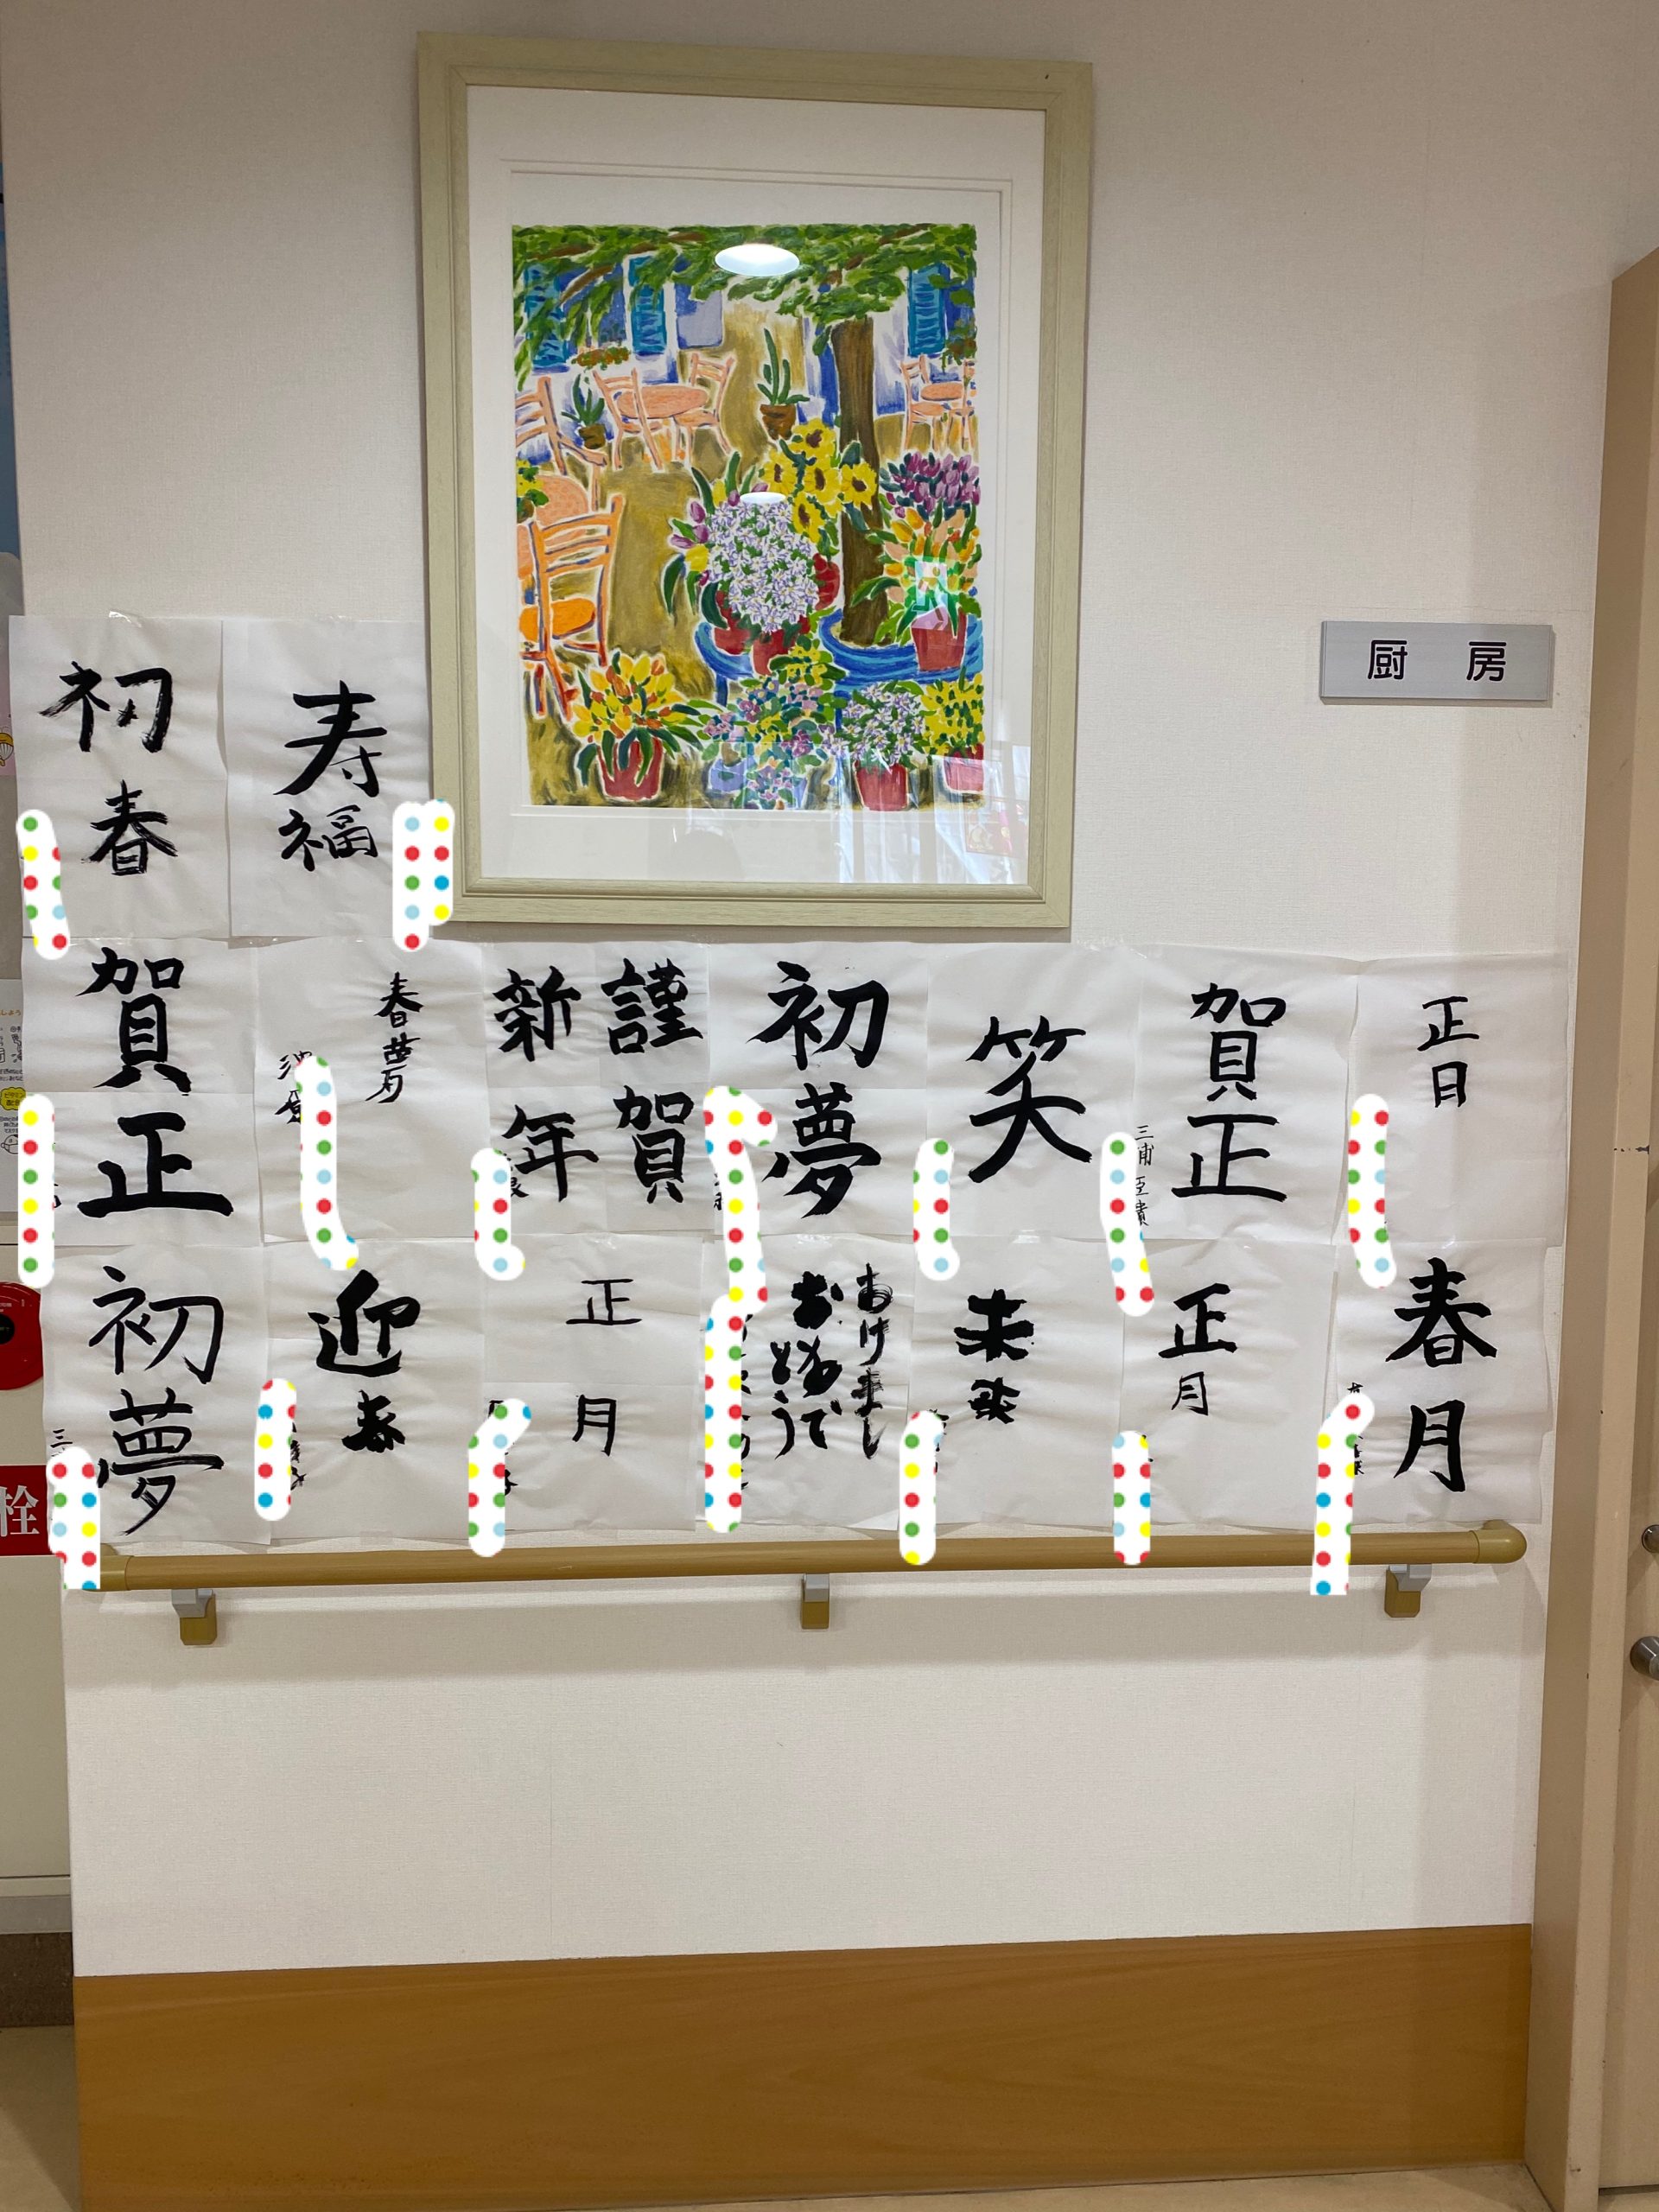 厨房
寿福
初春
正日
賀正
笑
初夢
謹賀
新年
春夢
賀正
春月
正月
あけまして
おめでとう
正月
迎春
初夢
栓